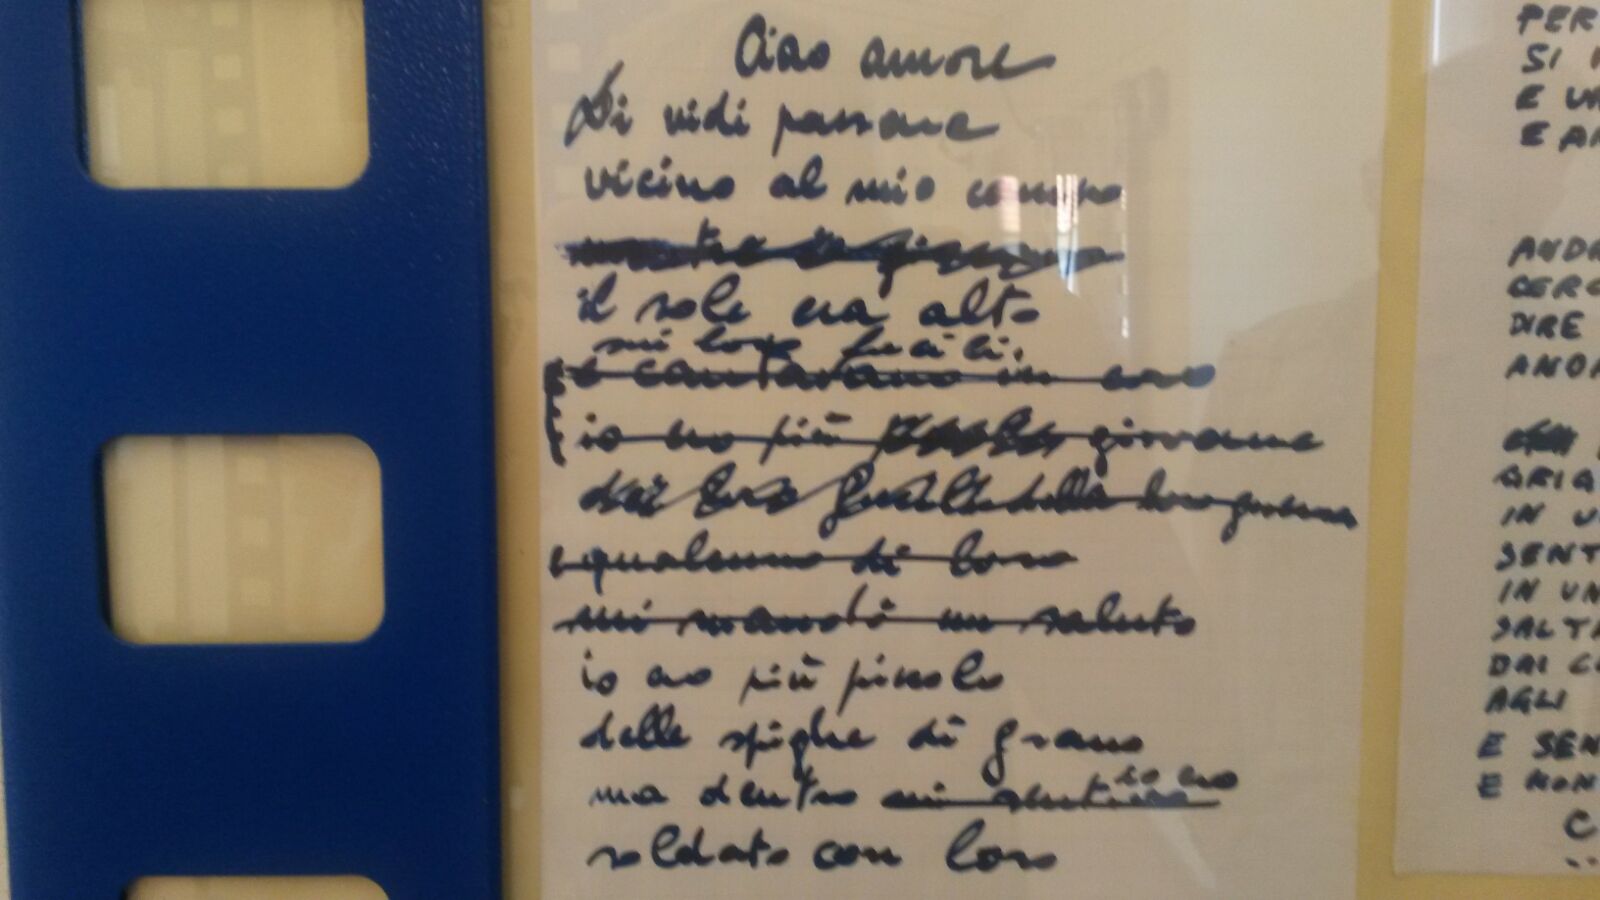 Ciao amore
Li vidi passare
vicino al mio
il sole era alto
sui loro fucili.
e cantavano in coro
io ero più giovane
della loro
e qualcuno di loro
mi mandò un saluto
io ero più piccolo
delle spighe di grano
io ero
ma dentro mi sentivo
soldato con loro
PER
SI
E
E
CERC
DIRE
AMOR
ARIA
IN
SENT
IN UN
SALTA
DAI
AGLI
E SEN
E NON
C